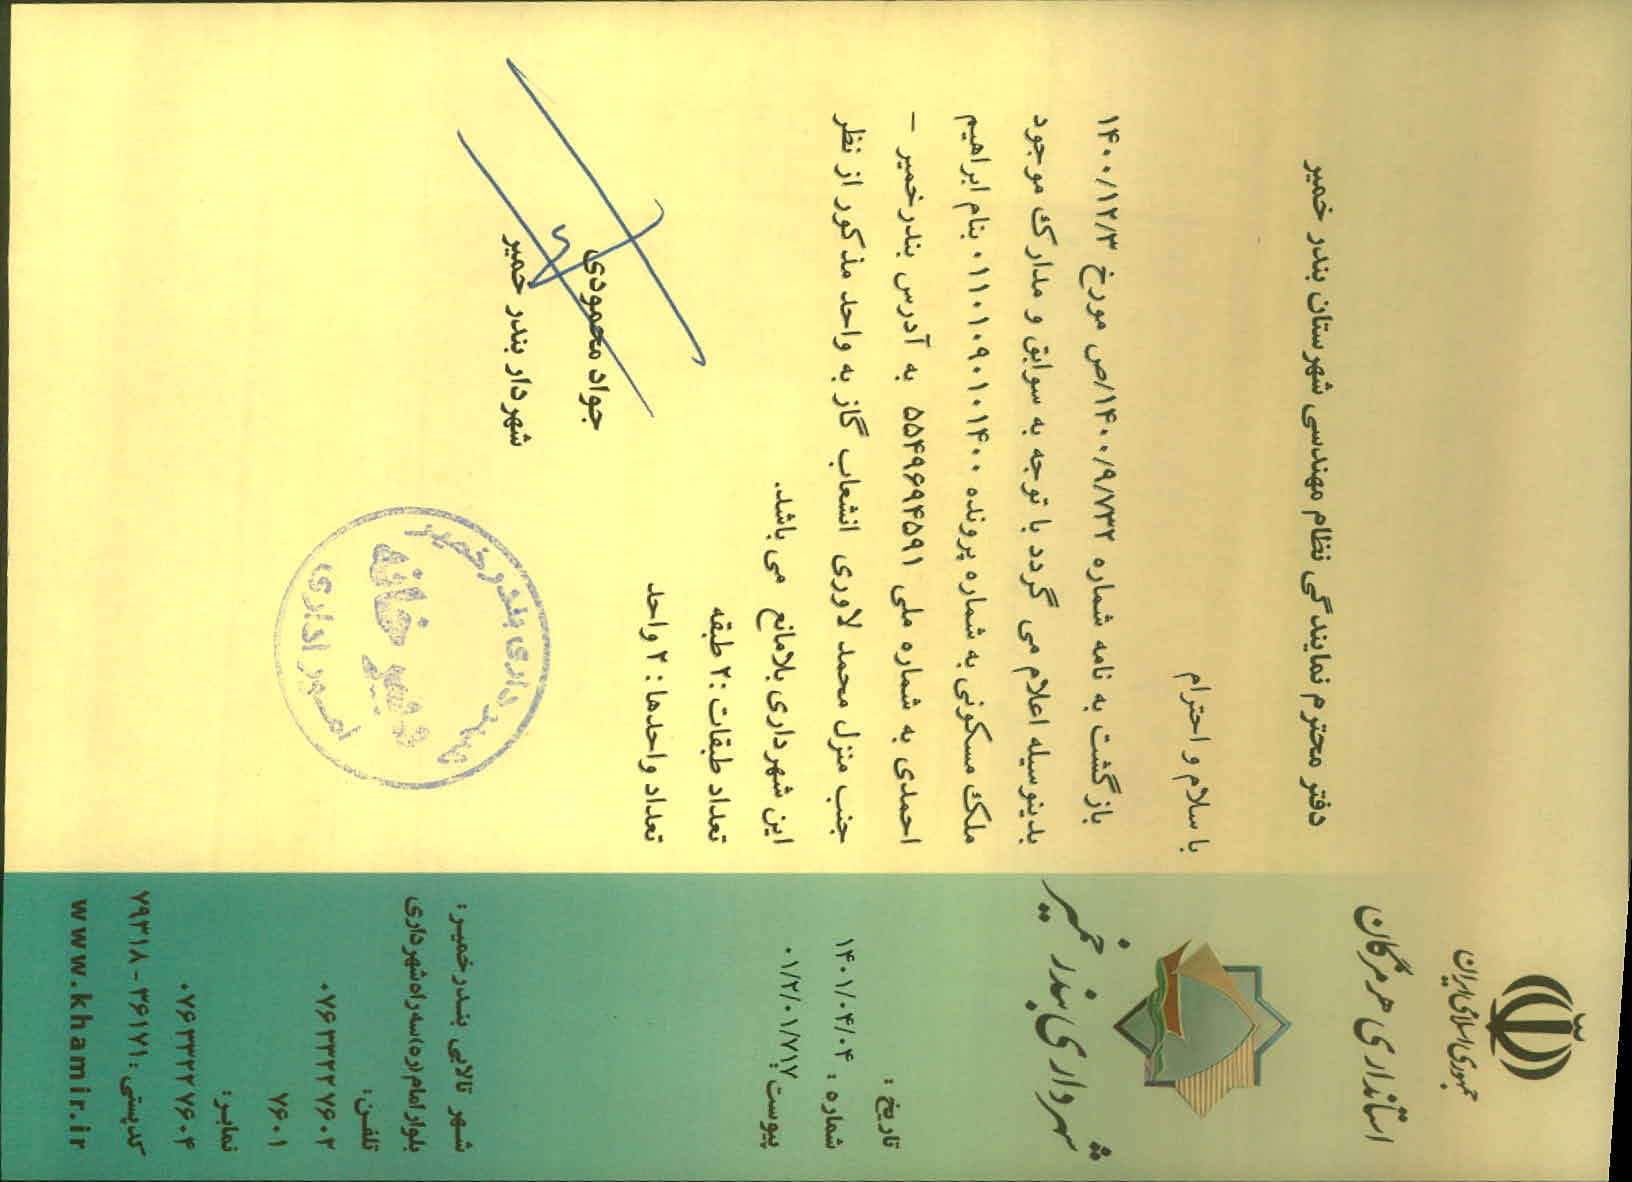 جمهوری اسلامی ایران
استانداری هرمزگان
شهرداری بندر خمیر
تاریخ :
۱۴۰۱/۰۴/۰۴
شماره :
۰۱/۲/۰۱/۷۱۷
پیوست :
شهر تالابی بندرخمیر:
بلوار امام (ره) سه راه شهرداری
تلفن:
۰۷۶۳۳۲۲۷۶۰۲
۷۶۰۱
نمابر:
۰۷۶۳۳۲۲۷۶۰۴
کدپستی : ۳۶۱۷۱ - ۷۹۳۱۸
www.khamir.ir
دفتر محترم نمایندگی نظام مهندسی شهرستان بندر خمیر
با سلام و احترام
بازگشت به نامه شماره ۱۴۰۰/۹/۷۳۲/ص مورخ ۱۴۰۰/۱۲/۳
بدینوسیله اعلام می گردد با توجه به سوابق و مدارک موجود
ملک مسکونی به شماره پرونده ۰۱۱۰۱۰۹۰۱۰۱۴۰۰ بنام ابراهیم
احمدی به شماره ملی ۵۵۴۹۶۹۴۵۹۱ به آدرس بندرخمیر –
جنب منزل محمد لاوری انشعاب گاز به واحد مذکور از نظر
این شهرداری بلامانع می باشد.
تعداد طبقات :۲ طبقه
تعداد واحدها : ۲ واحد
جواد محمودی
شهردار بندر خمیر
شهرداری بندر خمیر
دبیرخانه
امور اداری